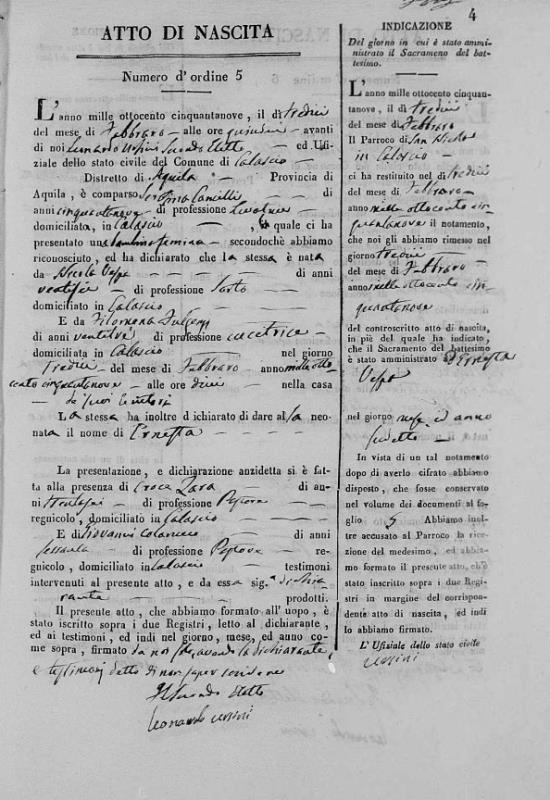 4
ATTO DI NASCITA
Numero d'ordine 5
L'anno mille ottocento cinquantanove, il dì tredici
del mese di Febbraro alle ore quindici avanti
di noi Leonardo Ursini Secondo Eletto ed Ufi-
ziale dello stato civile del Comune di Calascio
Distretto di Aquila Provincia di
Aquila, è comparsa Serafina Camilli di
anni cinquantanove di professione
domiciliata, in Calascio quale ci ha
presentato una bambina femina secondochè abbiamo
riconosciuto, ed ha dichiarato che la stessa è nata
da Nicola Vespa di anni
di professione Sarto
domiciliato in Calascio
E da Filomena Fulgenzi
di anni ventitre di professione cucitrice
domiciliata in Calascio nel giorno
Tredici del mese di Febbraro anno mille otto-
cento cinquantanove alle ore dieci nella casa
de' suoi Genitori
La stessa ha inoltre dichiarato di dare alla neo-
nata il nome di Ernesta
La presentazione, e dichiarazione anzidetta si è fat-
ta alla presenza di Croce Zara di an-
ni di professione Pastore
regnicolo, domiciliato in Calascio
E di Giovanni di anni
sessanta di professione Pastore re-
gnicolo, domiciliato in Calascio testimoni
intervenuti al presente atto, e da essa sig.ª dichia-
rante prodotti.
Il presente atto, che abbiamo formato all'uopo, è
stato iscritto sopra i due Registri, letto al dichiarante,
ed ai testimoni, ed indi nel giorno, mese, ed anno co-
me sopra, firmato da noi solo, avendo la dichiarante,
e testimonj detto di non saper scrivere
Il Secondo Eletto
Leonardo Ursini
INDICAZIONE
Del giorno in cui è stato ammi-
nistrato il Sacrameno del bat-
tesimo.
L'anno mille ottocento cinquan-
tanove, il dì tredici
del mese di Febbraro
Il Parroco di San Nicola
in Calascio
ci ha restituito nel dì tredici
del mese di Febbraro
anno mille ottocento cin-
quantanove il notamento,
che noi gli abbiamo rimesso nel
giorno tredici
del mese di Febbraro
anno mille ottocento cin-
quantanove
del controscritto atto di nascita,
in piè del quale ha indicato,
che il Sacramento del battesimo
è stato amministrato a Ernesta
Vespa
nel giorno mese ed anno
sudetto
In vista di un tal notamento
dopo di averlo cifrato abbiamo
disposto, che fosse conservato
nel volume dei documenti al fo-
glio 5 Abbiamo inol-
tre accusato al Parroco la rice-
zione del medesimo, ed abbia-
mo formato il presente atto, ch'è
stato inscritto sopra i due Regi-
stri in margine del corrispon-
dente atto di nascita, ed indi
lo abbiamo firmato.
L'Ufiziale dello stato civile
Ursini